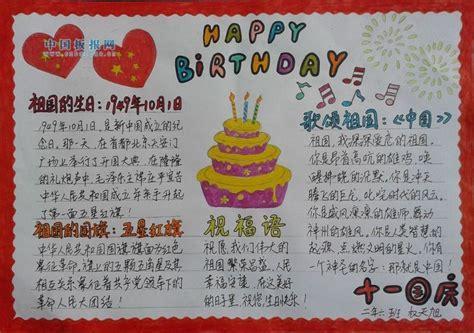 中国板报网
HAPPY
BiRTHDAY
祖国的生日：1949年10月1日
1949年10月1日，是新中国成立的纪
念日，那一天，在首都北京天安门
广场上举行了开国大典，在隆隆
的礼炮声中，毛泽东主席庄严宣告
中华人民共和国成立并亲手升起
了第一面五星红旗！
祖国的国旗：五星红旗
中华人民共和国国旗旗面为红色
象征革命，旗上的五颗五角星及其
相互关系象征着共产党领导下的
革命人民大团结！
祝福语
祝愿，我们伟大的
祖国繁荣昌盛，人民
幸福安康，在这美好
的日子里，祝您生日快乐！
歌颂祖国：《中国》
祖国，我深深爱恋的祖国。
你是昂首高吭的雄鸡，唤
醒拂晓的沉默，你是冲天
腾飞的巨龙，叱咤时代的风云，
你是威风凛凛的雄师舞动
神州的雄风，你是人类智慧的
起源，点燃文明的星火。你有
一个神圣的名字，那就是中国！
十一国庆
二年六班 权天旭